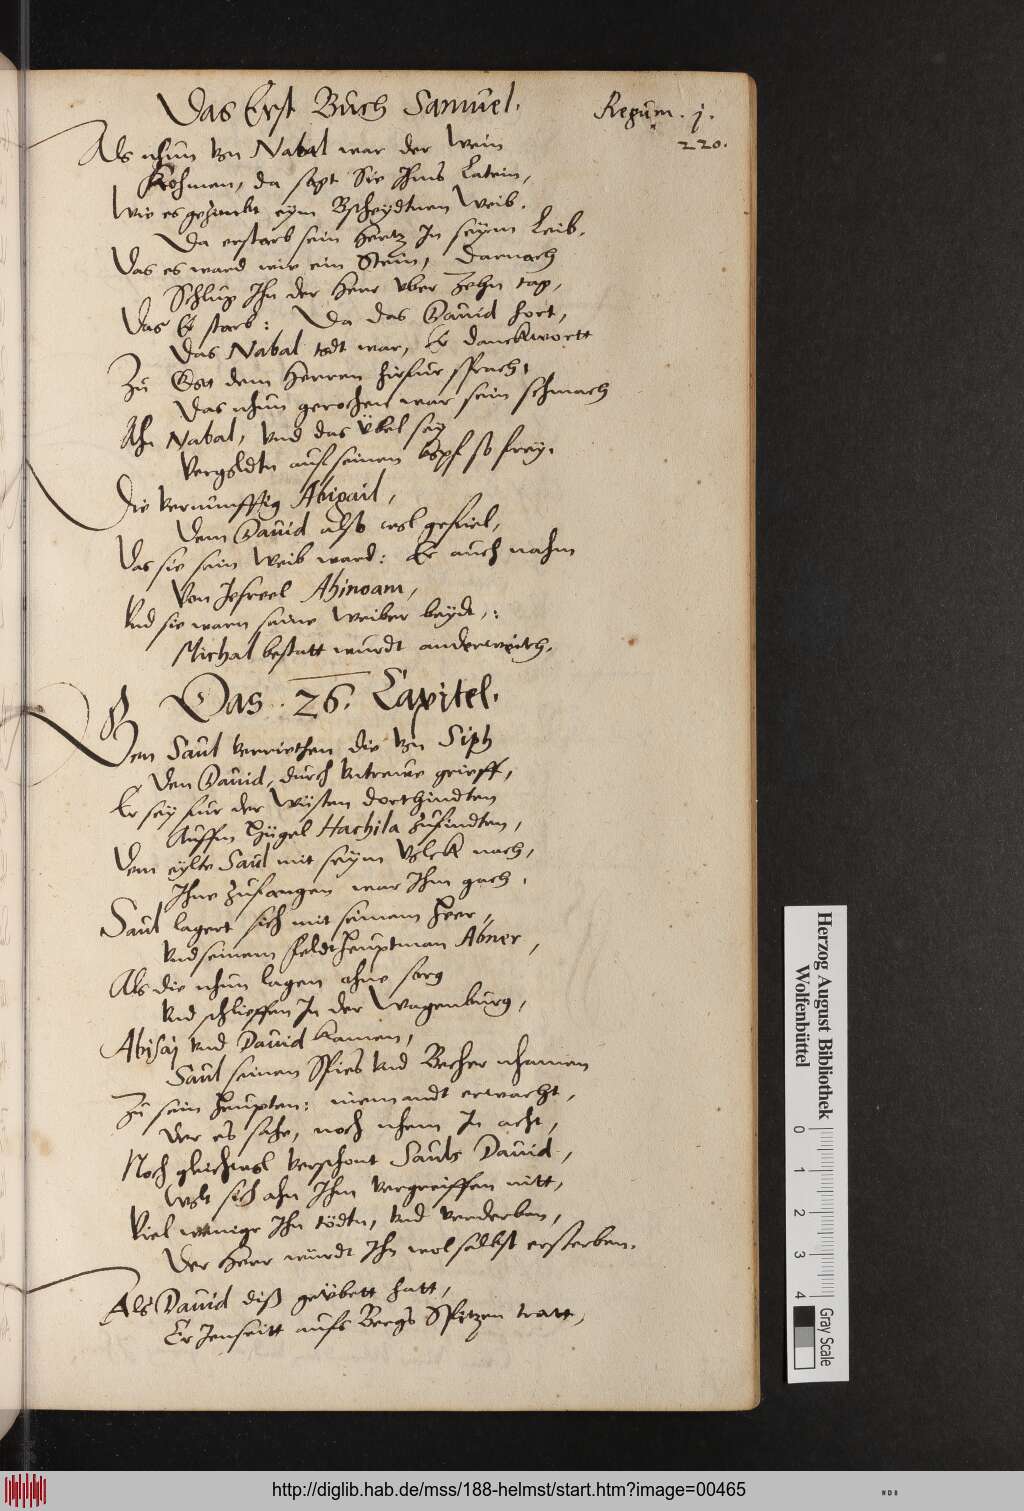 Das Erst Buch Samuel.
Regum. j.
220.
Als nhun von Nabal war der Wein
Kohmen, da sagt Sie Ihms Latein,
Wie es gezimbt eym Bscheydtnen Weib.
Da erstarb sein Hertz In seym Leib,
Das es ward wie ein Stein, Darnach
Schlug Ihn der Herr vber Zehn tag,
Das Er starb: Da das Dauid hort,
Das Nabal todt war, Er danckwortt
Zu Gott dem Herren hirfur sprach,
Das nhun gerochen war sein schmach
Ahn Nabal, vnd das Übel sey
Vergoldtn auf seinen kopf so frey.
Die vernunfftig Abigail,
Dem Dauid also wol gefiel,
Das sie sein Weib ward: Er auch nahm
Von Jesreel Ahinoam,
Vnd sie warn seine Weiber beydt,:
Michal bestatt wurdt anderweith.
Das 26. Capitel.
Dem Saul verriethen die von Siph
Den Dauid, durch vntreuve grieff,
Er sey fur der Wüsten dorthindten
Auffm Hügel Hachila zufindten,
Dem eylte Saul mit seym Volck nach,
Ihne zufangen war Ihm gach.
Saul lagert sich mit seinem Heer,
Vnd seinem Feldthauptman Abner,
Als die nhun lagen ohne sorg
Vnd schlieffen In der Wagenburg,
Abisaj vnd Dauid kamen,
Saul seinen Spies vnd Becher nhamen
Zu sein Heupten: niemandt erwacht,
Der es sahe, noch nhem In acht,
Noch gleichwol verschont Sauls Dauid,
Wolt sich ahn Ihm vergreiffen nitt,
Viel wenige Ihn tödtn, vnd verderben,
Der Herr wurdt Ihn wol selbst ersterben.
Als Dauid diß geübett hatt,
Er Jenseitt aufs Bergs Spitzen tratt,
Herzog August Bibliothek
Wolfenbüttel
0 1 2 3 4
Gray Scale
http://diglib.hab.de/mss/188-helmst/start.htm?image=00465